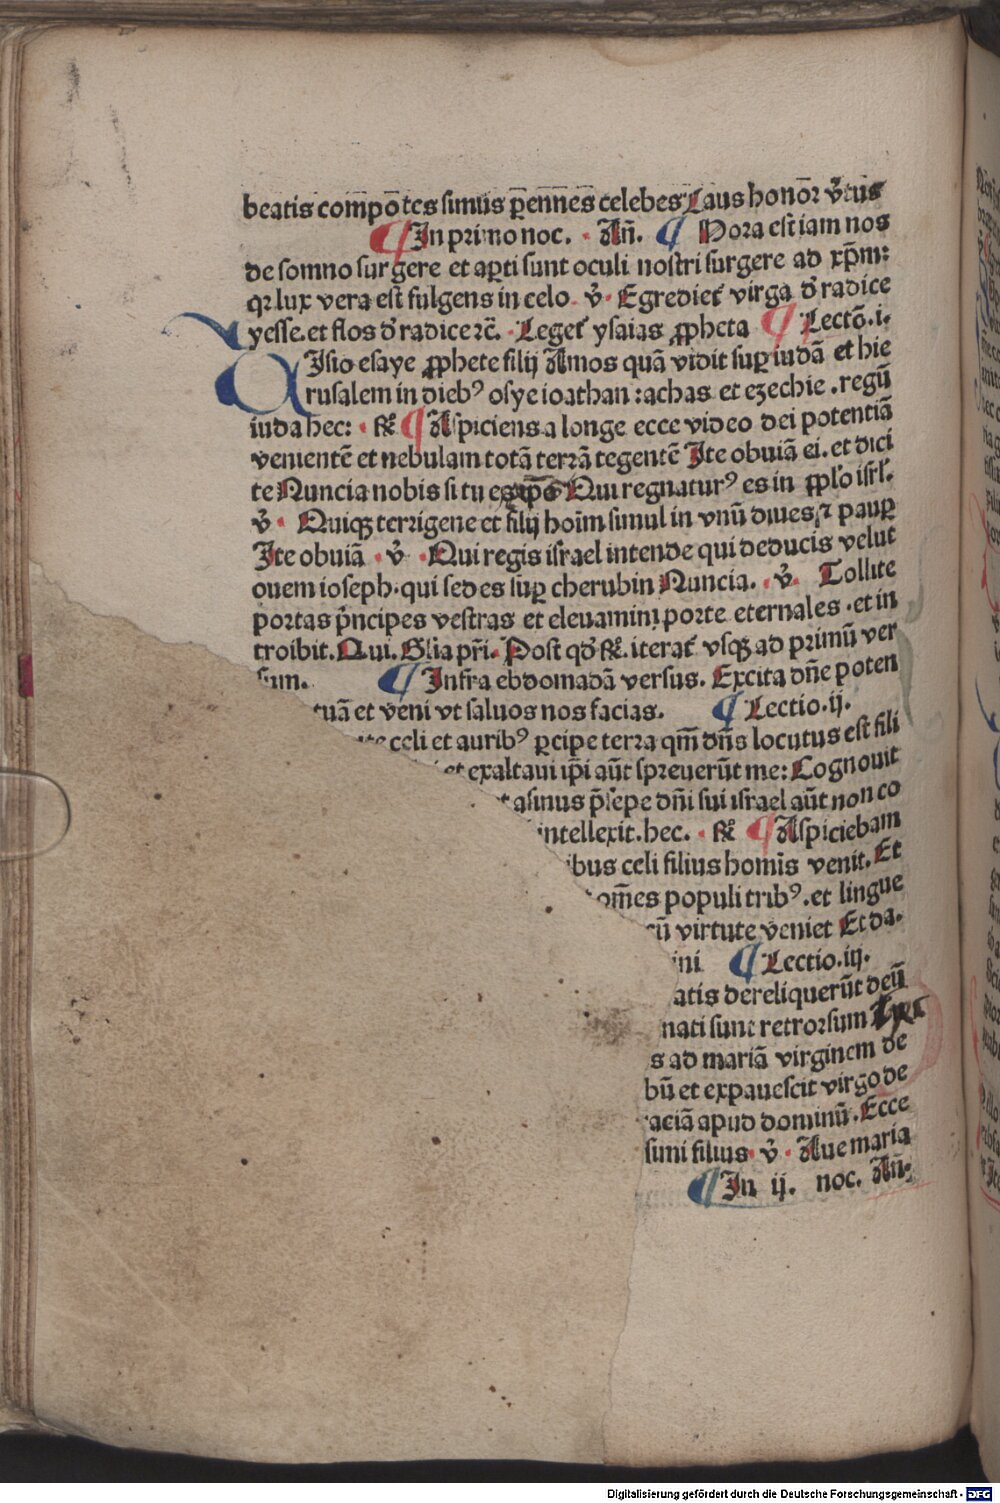 beatis compōtes simus ꝑennes celebes Laus honoꝛ v̄tus
¶ In primo noc. · Añ. ¶ Hora est iam nos
de somno surgere et aꝑti sunt oculi nostri surgere ad xp̄m:
qꝛ lux vera est fulgens in celo. v̄· Egrediet᷑ virga d̓ radice
yesse. et flos d̓ radice ꝛc̄. · Leget᷑ ysaias ꝓpheta ¶ Lectō.i.
VIsio esaye ꝓphete filij Amos quā vidit suꝑ iudā et hie
rusalem in dieb⁹ osye ioathan: achas et ezechie. regū
iuda hec: · ℟ ¶ Aspiciens a longe ecce video dei potentiā
venientē et nebulam totā terrā tegentē Ite obuiā ei. et dici
te Nuncia nobis si tu es ip̄e Qui regnatur⁹ es in ꝓplo isrl.
v̄· Quiqꝫ terrigene et filij hoīm simul in vnū diues ⁊ pauꝑ
Ite obuiā · v̄ · Qui regis israel intende qui deducis velut
ouem ioseph. qui sedes suꝑ cherubin Nuncia. · v̄· Tollite
portas p̄ncipes vestras et eleuamini porte eternales. et in
troibit. Qui. Gl̄ia pr̄i. Post qd̓ ℟. iterat᷑ vsqꝫ ad primū ver
sum. ¶ Infra ebdomadā versus. Excita dn̄e poten
tuā et veni vt saluos nos facias. ¶ Lectio.ij.
celi et aurib⁹ ꝑcipe terra qm̄ dn̄s locutus est fili
et exaltaui ip̄i aūt spreuerūt me: Cognouit
asinus p̄sepe dn̄i sui israel aūt non co
intellexit. hec. · ℟ ¶ Aspiciebam
ibus celi filius homīs venit. Et
om̄es populi trib⁹. et lingue
cū virtute veniet Et da.
ini ¶ Lectio.iij.
atis dereliquerūt deū
nati sunt retrorsum
s ad mariā virginem de
bū et expauescit virgo de
aciā apud dominū. Ecce
simi filius · v̄ · Aue maria
¶ In ij. noc. Añ.
Digitalisierung gefördert durch die Deutsche Forschungsgemeinschaft - DFG